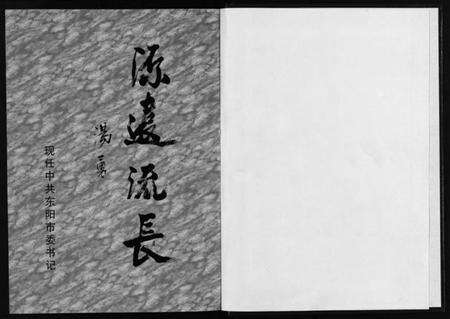 源遠流長
湯勇
现任中共东阳市委书记